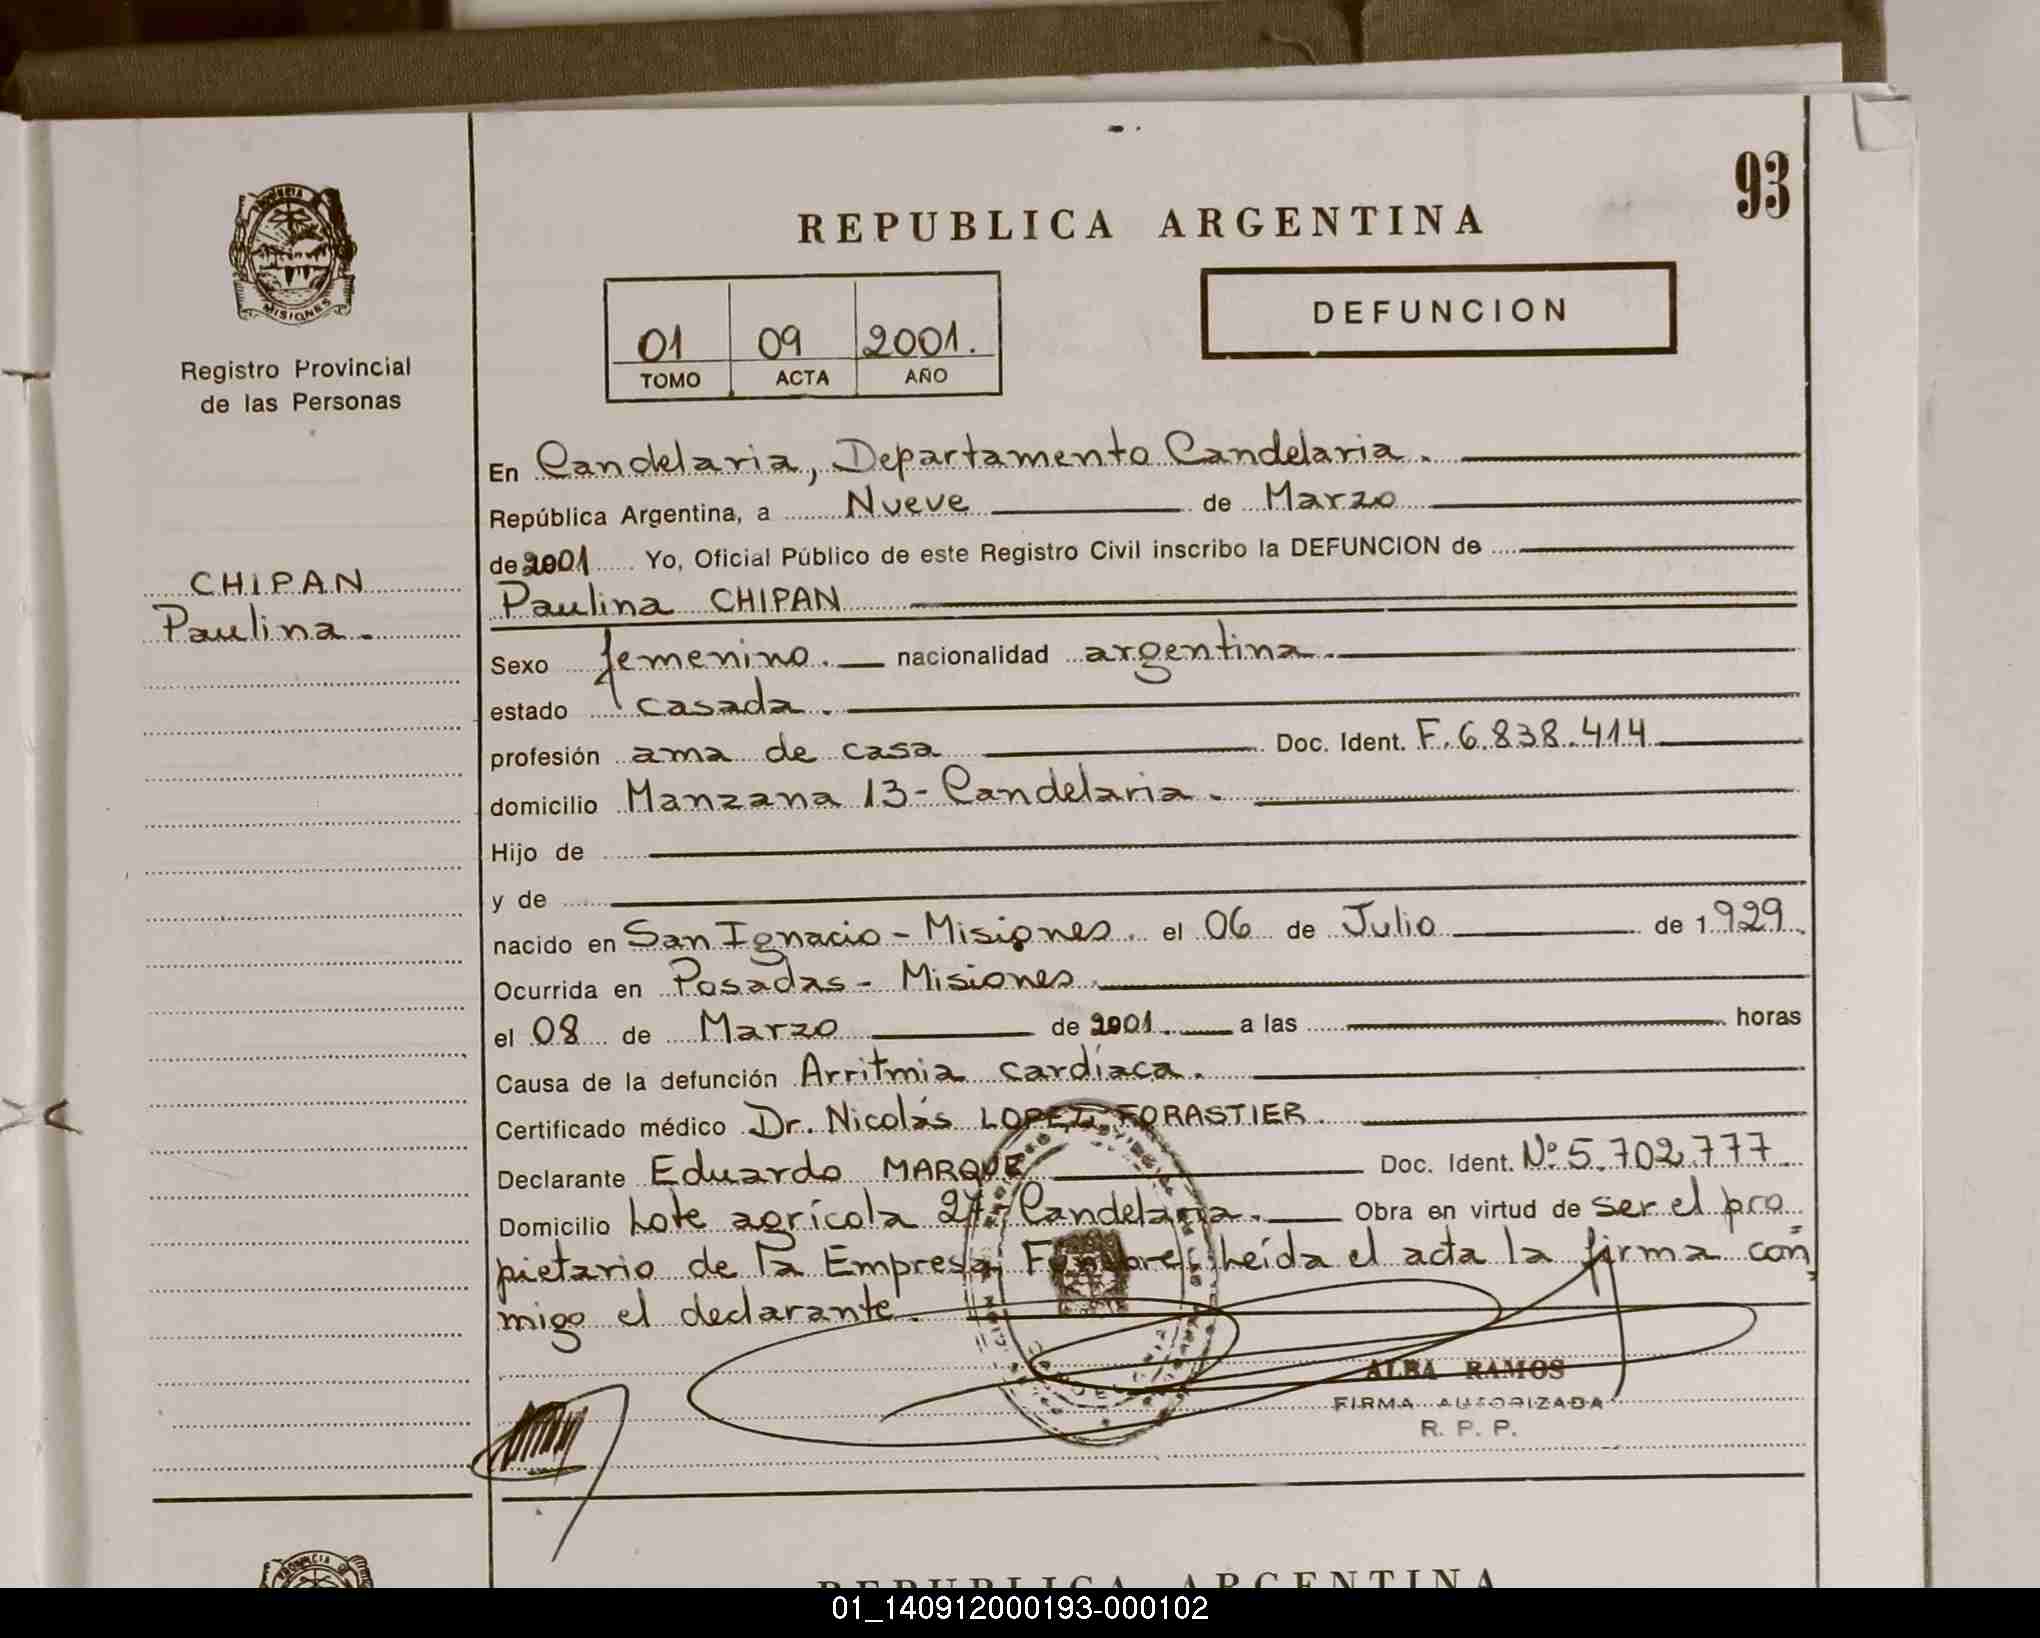 93
REPUBLICA ARGENTINA
DEFUNCION
01 09 2001.
TOMO ACTA AÑO
PROVINCIA
MISIONES
Registro Provincial
de las Personas
CHIPAN
Paulina.
En Candelaria, Departamento Candelaria.
República Argentina, a Nueve de Marzo
de 2001 Yo, Oficial Público de este Registro Civil inscribo la DEFUNCION de
Paulina CHIPAN
Sexo femenino. nacionalidad argentina.
estado casada.
profesión ama de casa Doc. Ident. F. 6.838.414
domicilio Manzana 13 - Candelaria.
Hijo de
y de
nacido en San Ignacio - Misiones. el 06 de Julio de 1929.
Ocurrida en Posadas - Misiones.
el 08 de Marzo de 2001. a las horas
Causa de la defunción Arritmia cardíaca.
Certificado médico Dr. Nicolás LOPEZ FORASTIER.
Declarante Eduardo MARQUE Doc. Ident. Nº 5.702.777
Domicilio Lote agrícola 27 - Candelaria. Obra en virtud de ser el pro=
pietario de la Empresa Fúnebre. Leída el acta la firma con=
migo el declarante.
ALBA RAMOS
FIRMA AUTORIZADA
R. P. P.
REPUBLICA ARGENTINA
01_140912000193-000102